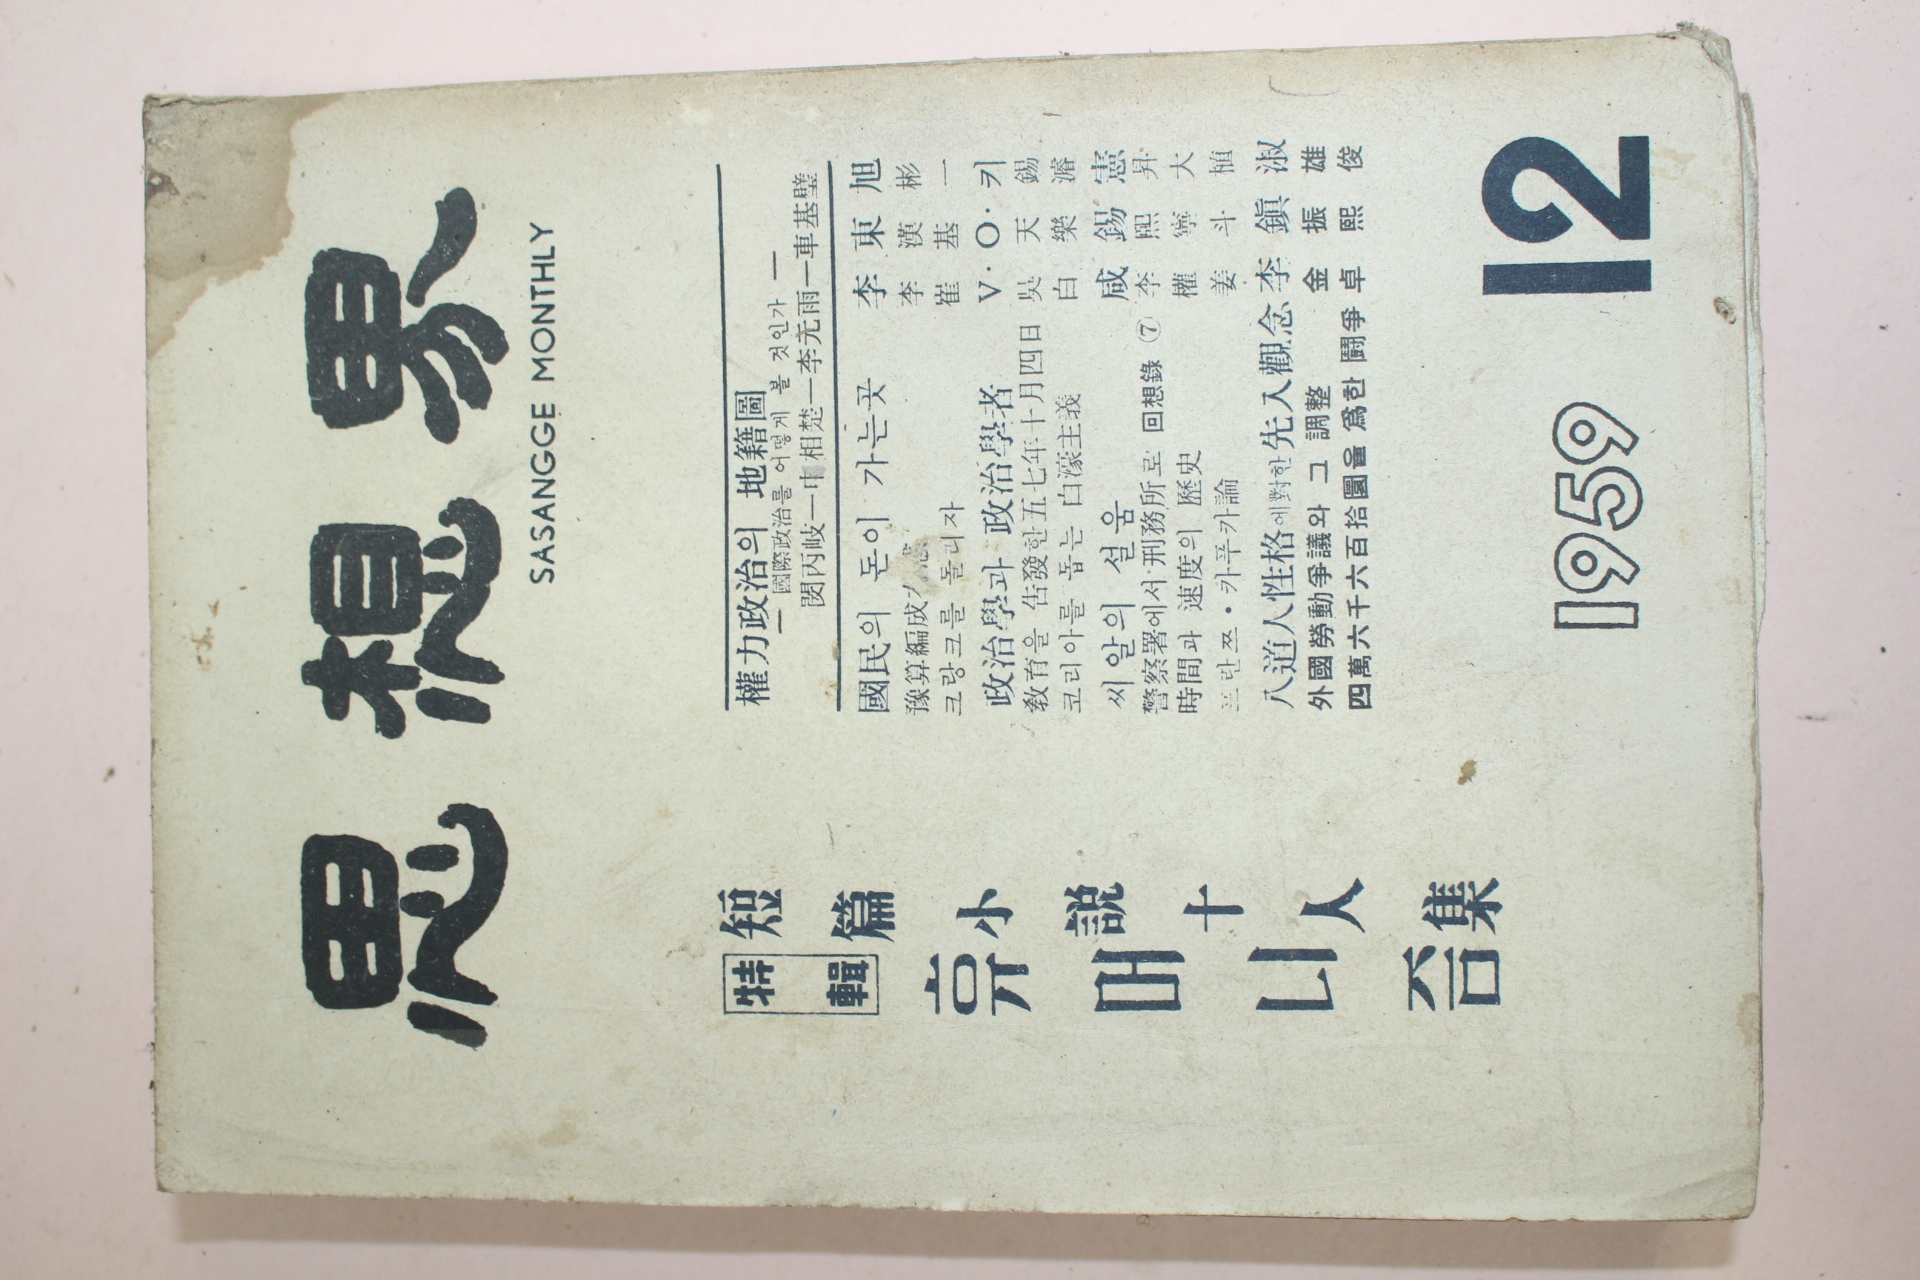 思想界
SASANGGE MONTHLY
權力政治의 地籍圖
—國際政治를 어떻게 볼 것인가—
閔丙岐—申相楚—李允雨—車基璧
國民의 돈이 가는곳 李東旭
豫算編成 感 李漢彬
크랑크를 돌리자 崔基一
政治學과 政治學者 V·O·키
敎育을 告發한 五七年十月四日 吳天錫
코리아를 돕는 白濠主義 白樂濬
씨알의 설움 咸錫憲
警察署에서 刑務所로 回想錄 ⑦ 李熙昇
時間과 速度의 歷史 權寧大
프란쯔·카푸카論 姜斗植
八道人性格에 對한 先入觀念 李鎭淑
外國勞動爭議와 그 調整 金振雄
四萬六千六百拾圜을 爲한 鬪爭 卓熙俊
特輯
短篇小說十人集
휴매니즘
1959
12